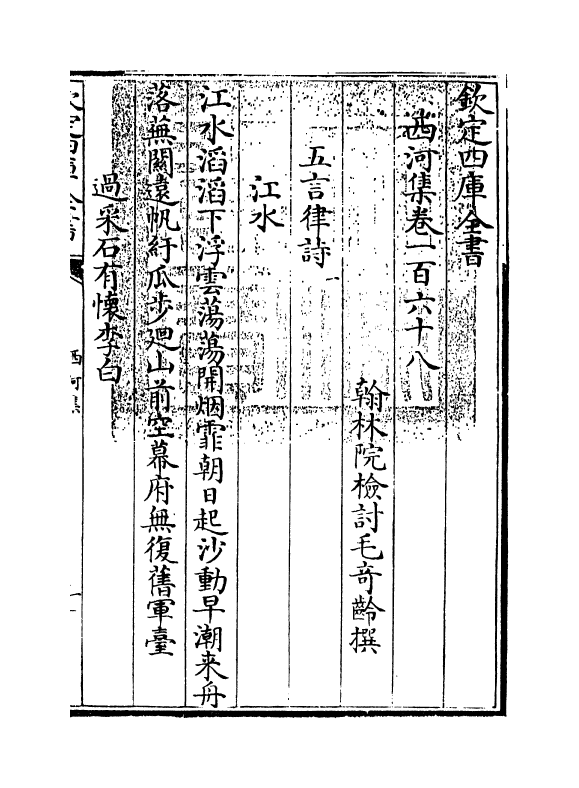 欽定四庫全書
西河集卷一百六十八
翰林院檢討毛奇齡撰
五言律詩一
江水
江水滔滔下浮雲蕩蕩開烟霏朝日起沙動早潮来舟
落蕪關遠帆紆瓜步廻山前空幕府無復舊軍臺
過采石有懷李白
欽定四庫全書
西河集
一